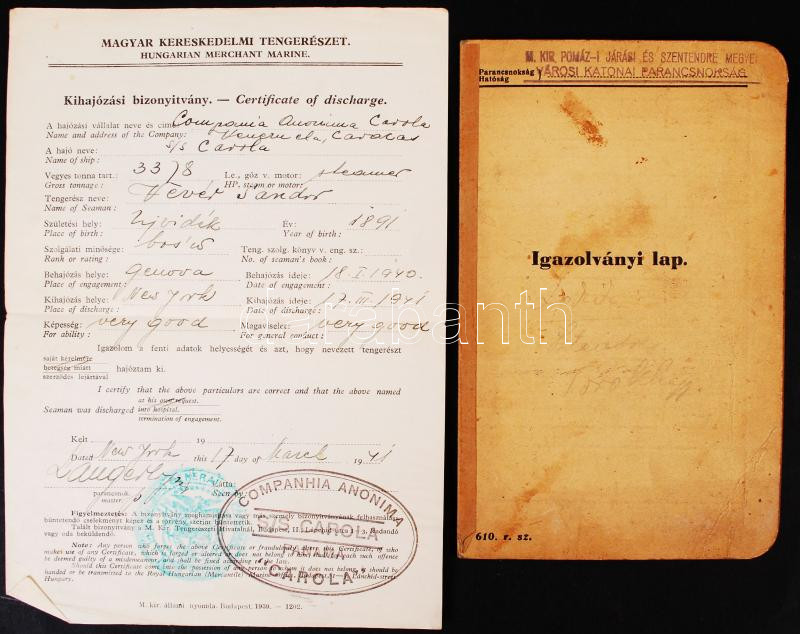 MAGYAR KERESKEDELMI TENGERÉSZET.
HUNGARIAN MERCHANT MARINE.
Kihajózási bizonyitvány. — Certificate of discharge.
A hajózási vállalat neve és cime: Compania Anonima Carola
Name and address of the Company: Caracas
A hajó neve: s/s Carola
Name of ship:
Vegyes tonna tart.: 3378 Le., gőz v. motor: steamer
Gross tonnage: HP, steam or motor:
Tengerész neve: Hévér Sándor
Name of Seaman:
Születési hely: Ujvidék Év: 1891
Place of birth: Year of birth:
Szolgálati minősége: Teng. szolg. könyv v. eng. sz.:
Rank or rating: No. of seaman's book:
Behajózás helye: Genova Behajózás ideje: 18. I. 1940.
Place of engagement: Date of engagement:
Kihajózás helye: New York Kihajózás ideje: 17. III. 1941
Place of discharge: Date of discharge:
Képesség: very good Magaviselet: very good
For ability: For general conduct:
Igazolom a fenti adatok helyességét és azt, hogy nevezett tengerészt
saját kérelmére
betegség miatt hajóztam ki.
szerződés lejártával
I certify that the above particulars are correct and that the above named
at his own request.
Seaman was discharged into hospital.
termination of engagement.
Kelt 19
Dated New York this 17 day of March 1941
Látta:
parancsnok Seen by:
master.
Figyelmeztetés: A bizonyitvány meghamisitása vagy más személy bizonyitványának felhasználása
büntetendő cselekményt képez és a törvény szerint büntettetik.
Talált bizonyitvány a M. Kir. Tengerészeti Hivatalnál, Budapest, II., Lánchid utca 1—3, leadandó
vagy oda beküldendő.
Note: Any person who forges the above Certificate or fraudulently alters this Certificate, or who
makes use of any Certificate, which is forged or altered or does not belong to him, shall for each such offence
be deemed guilty of a misdemeanour, and shall be fined according to the law.
Should this Certificate come into the possession of any person to whom it does not belong, it should be
handed or be transmitted to the Royal Hungarian (Mercantile) Marine Office, Budapest, II. Lánchid-street
Hungary.
COMPANHIA ANONIMA
S/S CAROLA
"CAROLA"
M. kir. állami nyomda. Budapest, 1939. — 1202.
M. KIR. POMÁZ-I JÁRÁSI ÉS SZENTENDRE MEGYEI
Parancsnokság
Hatóság
VÁROSI KATONAI PARANCSNOKSÁG
Igazolványi lap.
610. r. sz.
darabanth